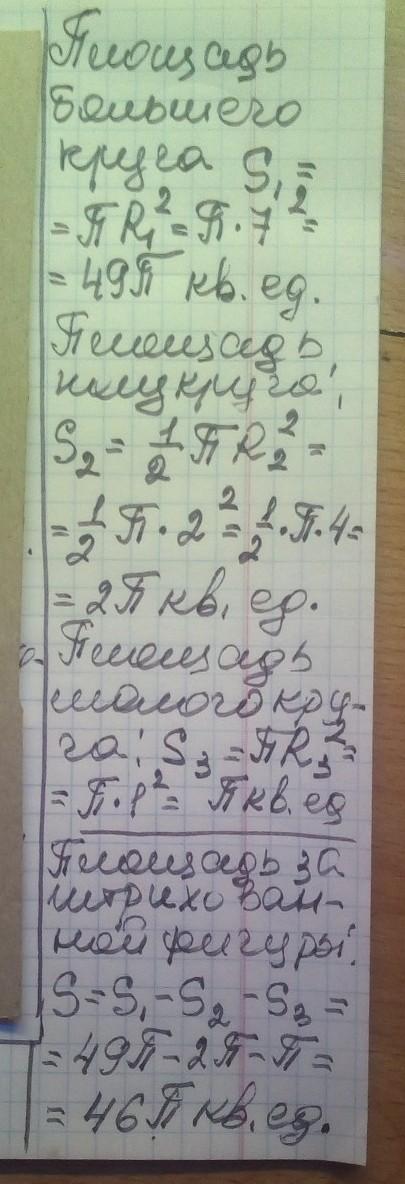 Площадь
большего
круга S₁ =
= ПR₁² = П·7² =
= 49П кв. ед.
Площадь
полукруга:
S₂ = 1/2 ПR₂² =
= 1/2 П·2² = 1/2·П·4 =
= 2П кв. ед.
Площадь
малого кру-
га: S₃ = ПR₃² =
= П·1² = П кв. ед
Площадь за
штрихован-
ной фигуры:
S = S₁ - S₂ - S₃ =
= 49П - 2П - П =
= 46П кв. ед.